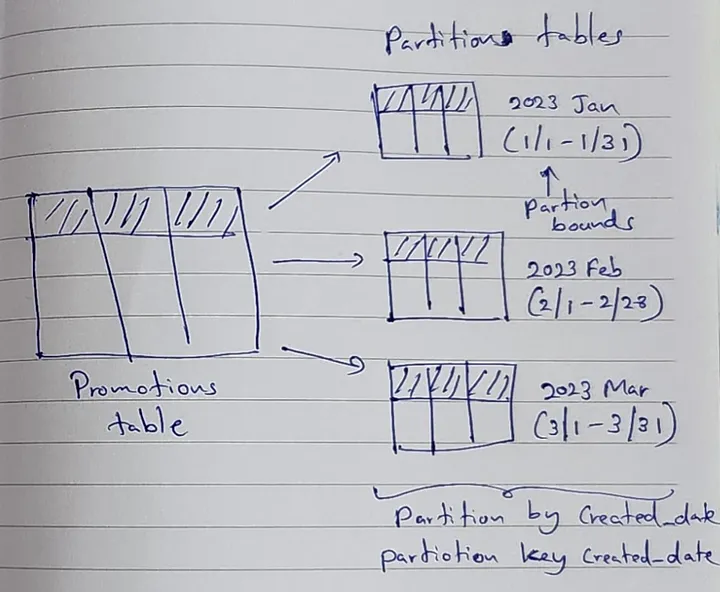 Partition tables
2023 Jan
(1/1 - 1/31)
partion
bounds
2023 Feb
(2/1 - 2/28)
Promotions
table
2023 Mar
(3/1 - 3/31)
Partition by Created_date
partiotion key Created_date